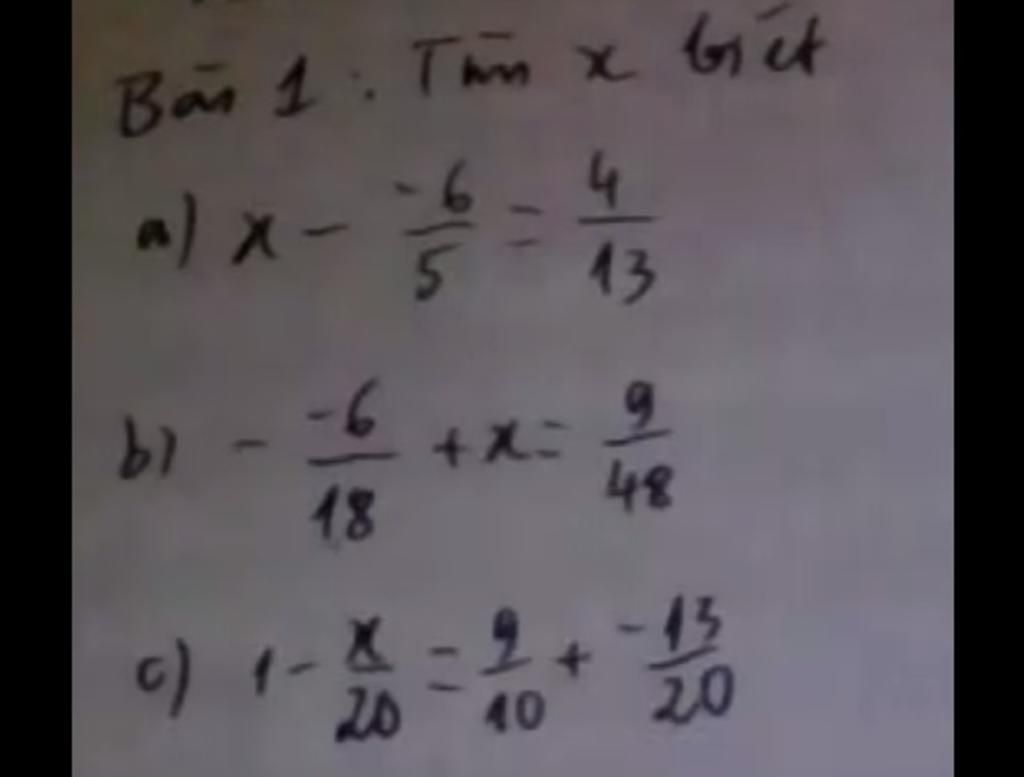 Bài 1 : Tìm x biết
a) x - \frac{-6}{5} = \frac{4}{13}
b) - \frac{-6}{18} + x = \frac{9}{48}
c) 1 - \frac{x}{20} = \frac{9}{10} + \frac{-13}{20}